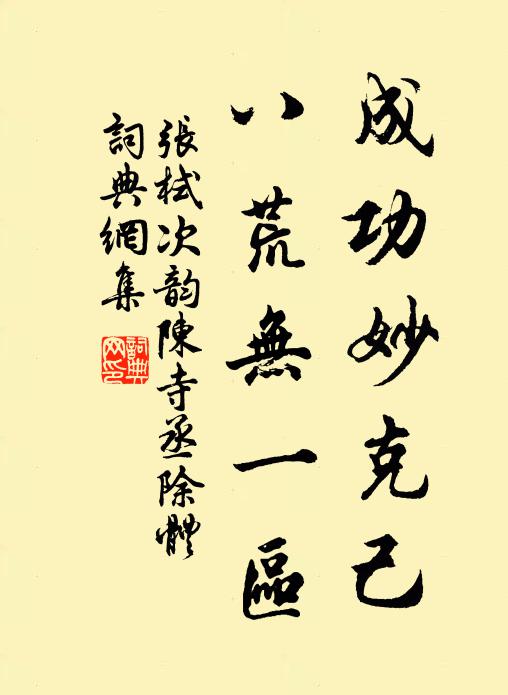 成功妙克己
八荒無一區
張栻次韵陳寺丞除體
詞典網集
詞典
网印